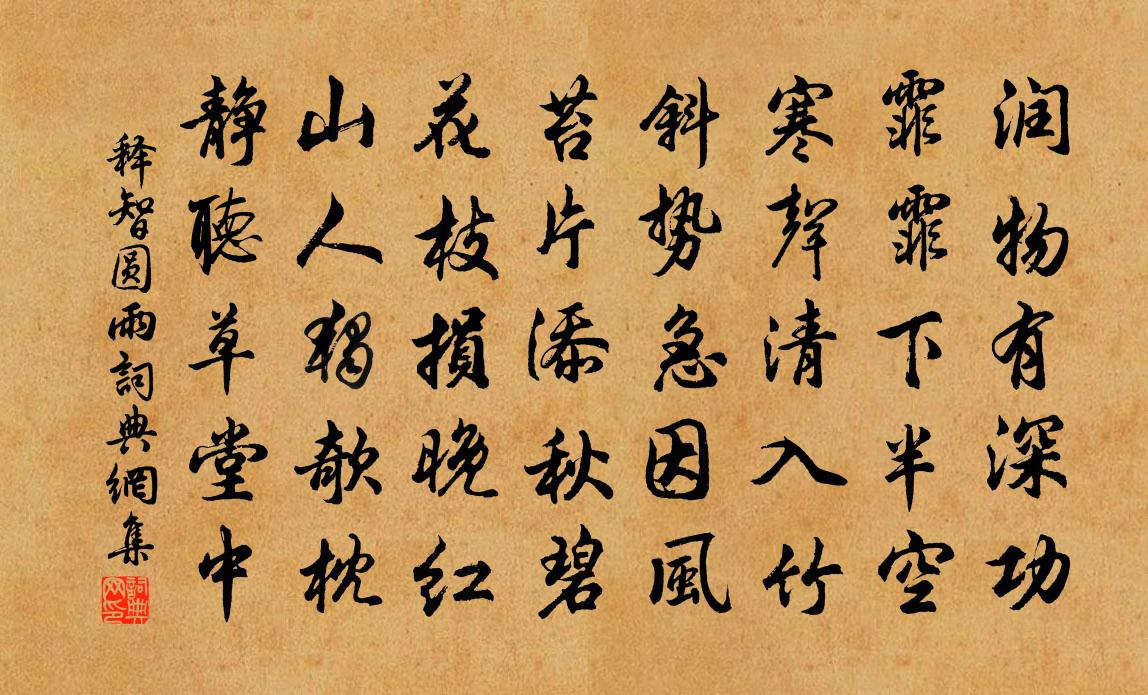 润物有深功
霏霏下半空
寒聲清入竹
斜势急因風
苔片添秋碧
花枝損晚红
山人獨欹枕
静聽草堂中
释智圆雨詞典網集
詞典网印